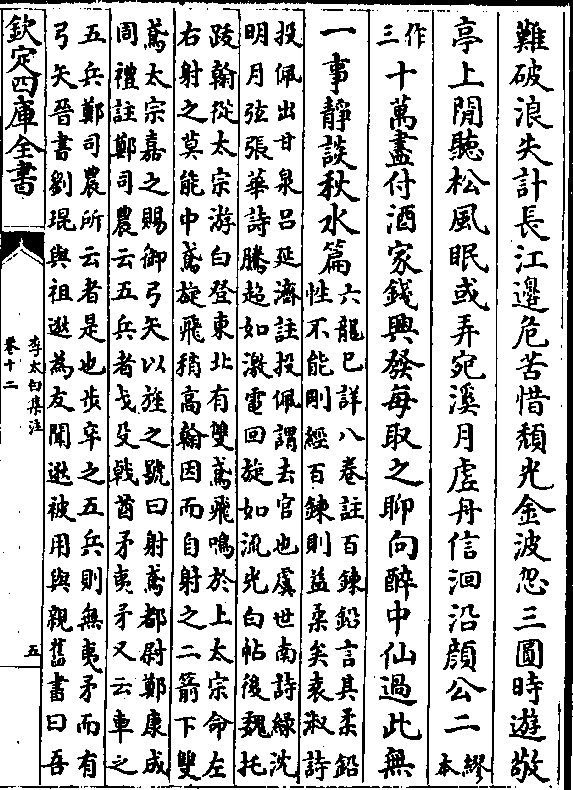 難破浪失計長江邊危苦惜頹光金波忽三圓時遊敬
亭上閒聽松風眠或弄宛溪月虛舟信洄沿顔公二繆本
作三十萬盡付酒家錢興發每取之聊向醉中仙過此無
一事靜談秋水篇六龍已詳八卷註百鍊鉛言其柔鉛
性不能剛經百鍊則益柔矣袁淑詩
投佩出甘泉呂延濟註投佩謂去官也虞世南詩綠沈
明月弦張華詩騰超如激電回旋如流光白帖後魏托
跋翰從太宗游白登東北有雙鳶飛鳴於上太宗命左
右射之莫能中鳶旋飛稍高翰因而自射之二箭下雙
鳶太宗嘉之賜御弓矢以旌之號曰射鳶都尉鄭康成
周禮註鄭司農云五兵者戈殳戟酋矛夷矛又云車之
五兵鄭司農所云者是也步卒之五兵則無夷矛而有
弓矢晉書劉琨與祖逖為友聞逖被用與親舊書曰吾
欽定四庫全書
李太白集注
卷十二
五